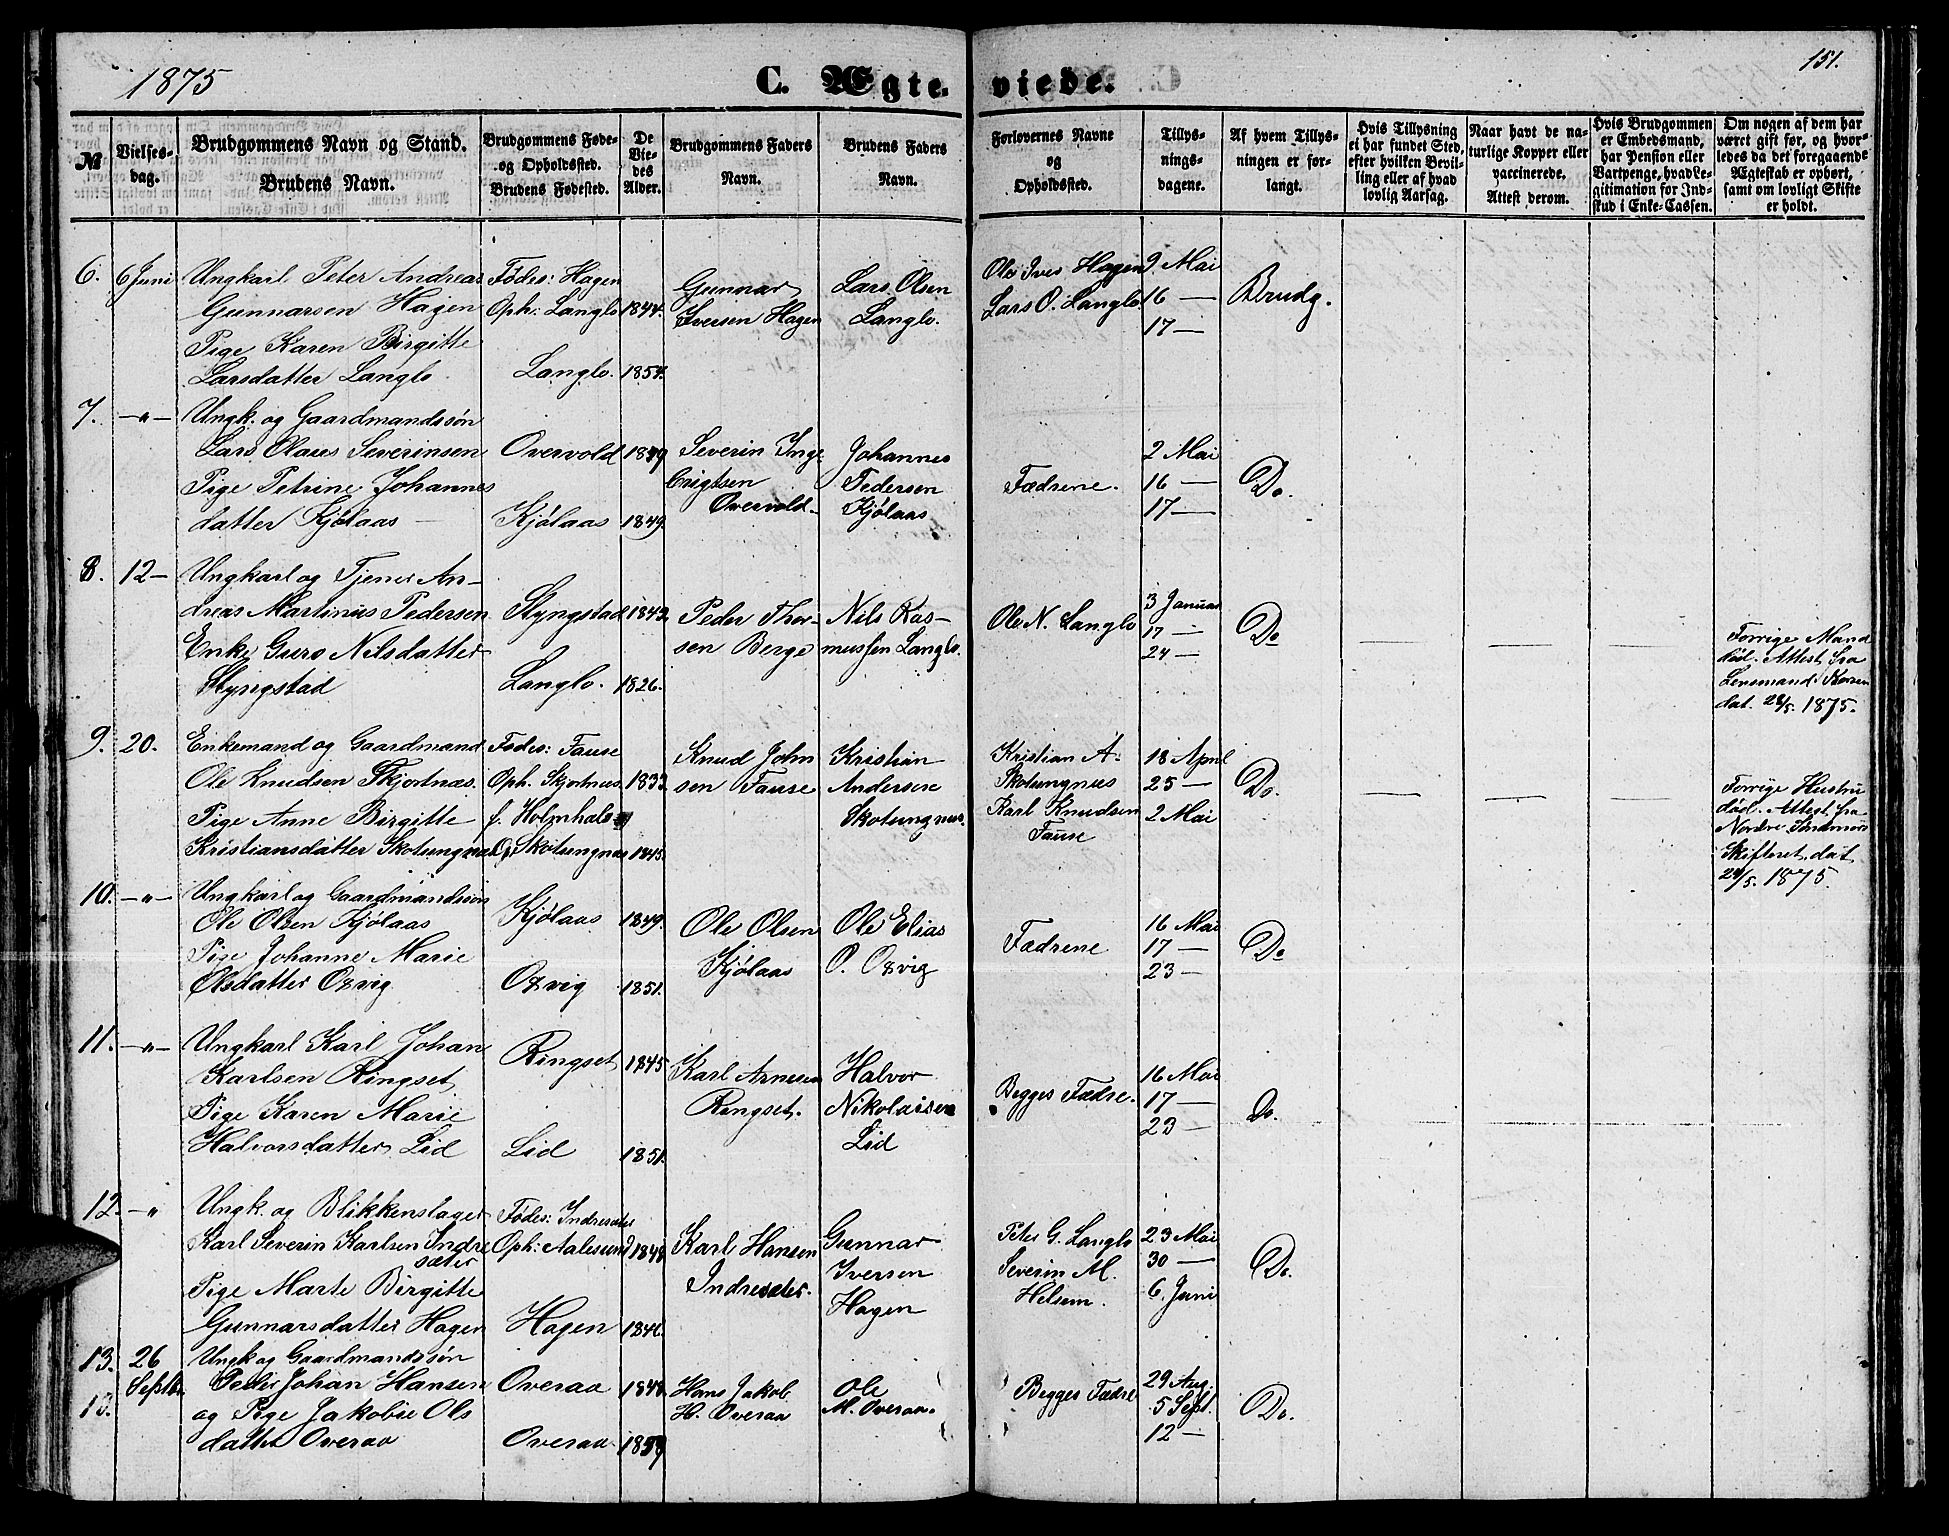 1875
C. Ægteviede.
151.
№
Vielsesdag.
Brudgommens Navn og Stand.
Brudens Navn.
Brudgommens Føde- og Opholdssted.
Brudens Fødested.
De Viedes Alder.
Brudgommens Faders Navn.
Brudens Faders Navn.
Forlovernes Navne og Opholdssted.
Tillysningsdagene.
Af hvem Tillysningen er forlangt.
Hvis Tillysning ei har fundet Sted, efter hvilken Bevilling eller af hvad lovlig Aarsag.
Naar havt de naturlige Kopper eller vaccinerede. Attest derom.
Hvis Brudgommen er Embedsmand, har Pension eller Vartpenge, hvad Legitimation for Indskud i Enke-Cassen.
Om nogen af dem har været gift før, og hvorledes da det foregaaende Ægteskab er ophørt, samt om lovligt Skifte er holdt.
6. 6 Juni
Ungkarl Peter Andreas
Gunnarsen Hagen
Pige Karen Birgitte
Larsdatter Langlo
Fødes: Hagen
Oph: Langlo 1844.
Langlo. 1854.
Gunnar
Iversen Hagen
Lars Olsen
Langlo.
Ole Ives Hagen
Lars O. Langlo
9 Mai
16 —
17 —
Brudg.
7. —"—
Ungk. og Gaardmandssøn
Lars Olaus Severinsen
Pige Petrine Johannes
datter Kjølaas —
Overvold 1849
Kjølaas 1849.
Severin Inge-
brigtsen
Overvold
Johannes
Pedersen
Kjølaas
Fædrene.
2 Mai
16 —
17 —
Do.
8. 12 —
Ungkarl og Tjener An-
dreas Martinus Pedersen
Enke Guro Nilsdatter
Slyngstad
Slyngstad 1843.
Langlo. 1826.
Peder Thor-
sen Berge
Nils Ras-
mussen Langlo.
Ole N. Langlo
3 Januar
17 —
24 —
Do
Forrige Mand
død. Attest fra
Lensmand
dat. 28/5. 1875.
9. 20.
Enkemand og Gaardmand
Ole Knudsen Skjortnæs.
Pige Anne Birgitte
Kristiansdatter Skotungnæs
Fødes: Fause
Oph. Skjortnus 1833.
f. Holmhals
O. Skotungnæs 1845.
Knud John
sen Fause
Kristian
Andersen
Skotungnus.
Kristian A.
Skotungnus
Karl Knudsen
Fause
18 April
25 —
2 Mai
Do.
Forrige Hustru
død. Attest fra
Nordre Søndmøre
Skifteret dat.
28/5. 1875.
10. —"—
Ungkarl og Gaardmandssøn
Ole Olsen Kjølaas
Pige Johanne Marie
Olsdatter Oxvig
Kjølaas 1849.
Oxvig 1851.
Ole Olsen
Kjølaas
Ole Elias
O. Oxvig
Fædrene
16 Mai
17 —
23 —
Do
11. —"—
Ungkarl Karl Johan
Karlsen Ringset
Pige Karen Marie
Halvorsdatter Lid
Ringset 1845
Lid 1851.
Karl Arnesen
Ringset.
Halvor
Nikolaisen
Lid
Begges Fædre.
16 Mai
17 —
23 —
Do.
12. —"
Ungk. og Blikkenslager
Karl Severin Karlsen Indre
sæter
Pige Marte Birgitte
Gunnarsdatter Hagen
Fødes: Indresæter
Oph: Aalesund 1848
Hagen 1846.
Karl Hansen
Indresæter.
Gunnar
Iversen
Hagen
Peter G. Langlo
Severin M.
Helsem.
23 Mai
30 —
6. Juni
Do.
13. 26
Septbr.
13.
Ungk og Gaardmandssøn
Peder Johan Hansen
og Pige Jakobie Ols
datter Overaa
Overaa 1848.
Overaa 1859
Hans Jakob
H. Overaa
Ole
M. Overaa.
Begges Fædre
29 Aug.
5 Sept.
12 —
Do.